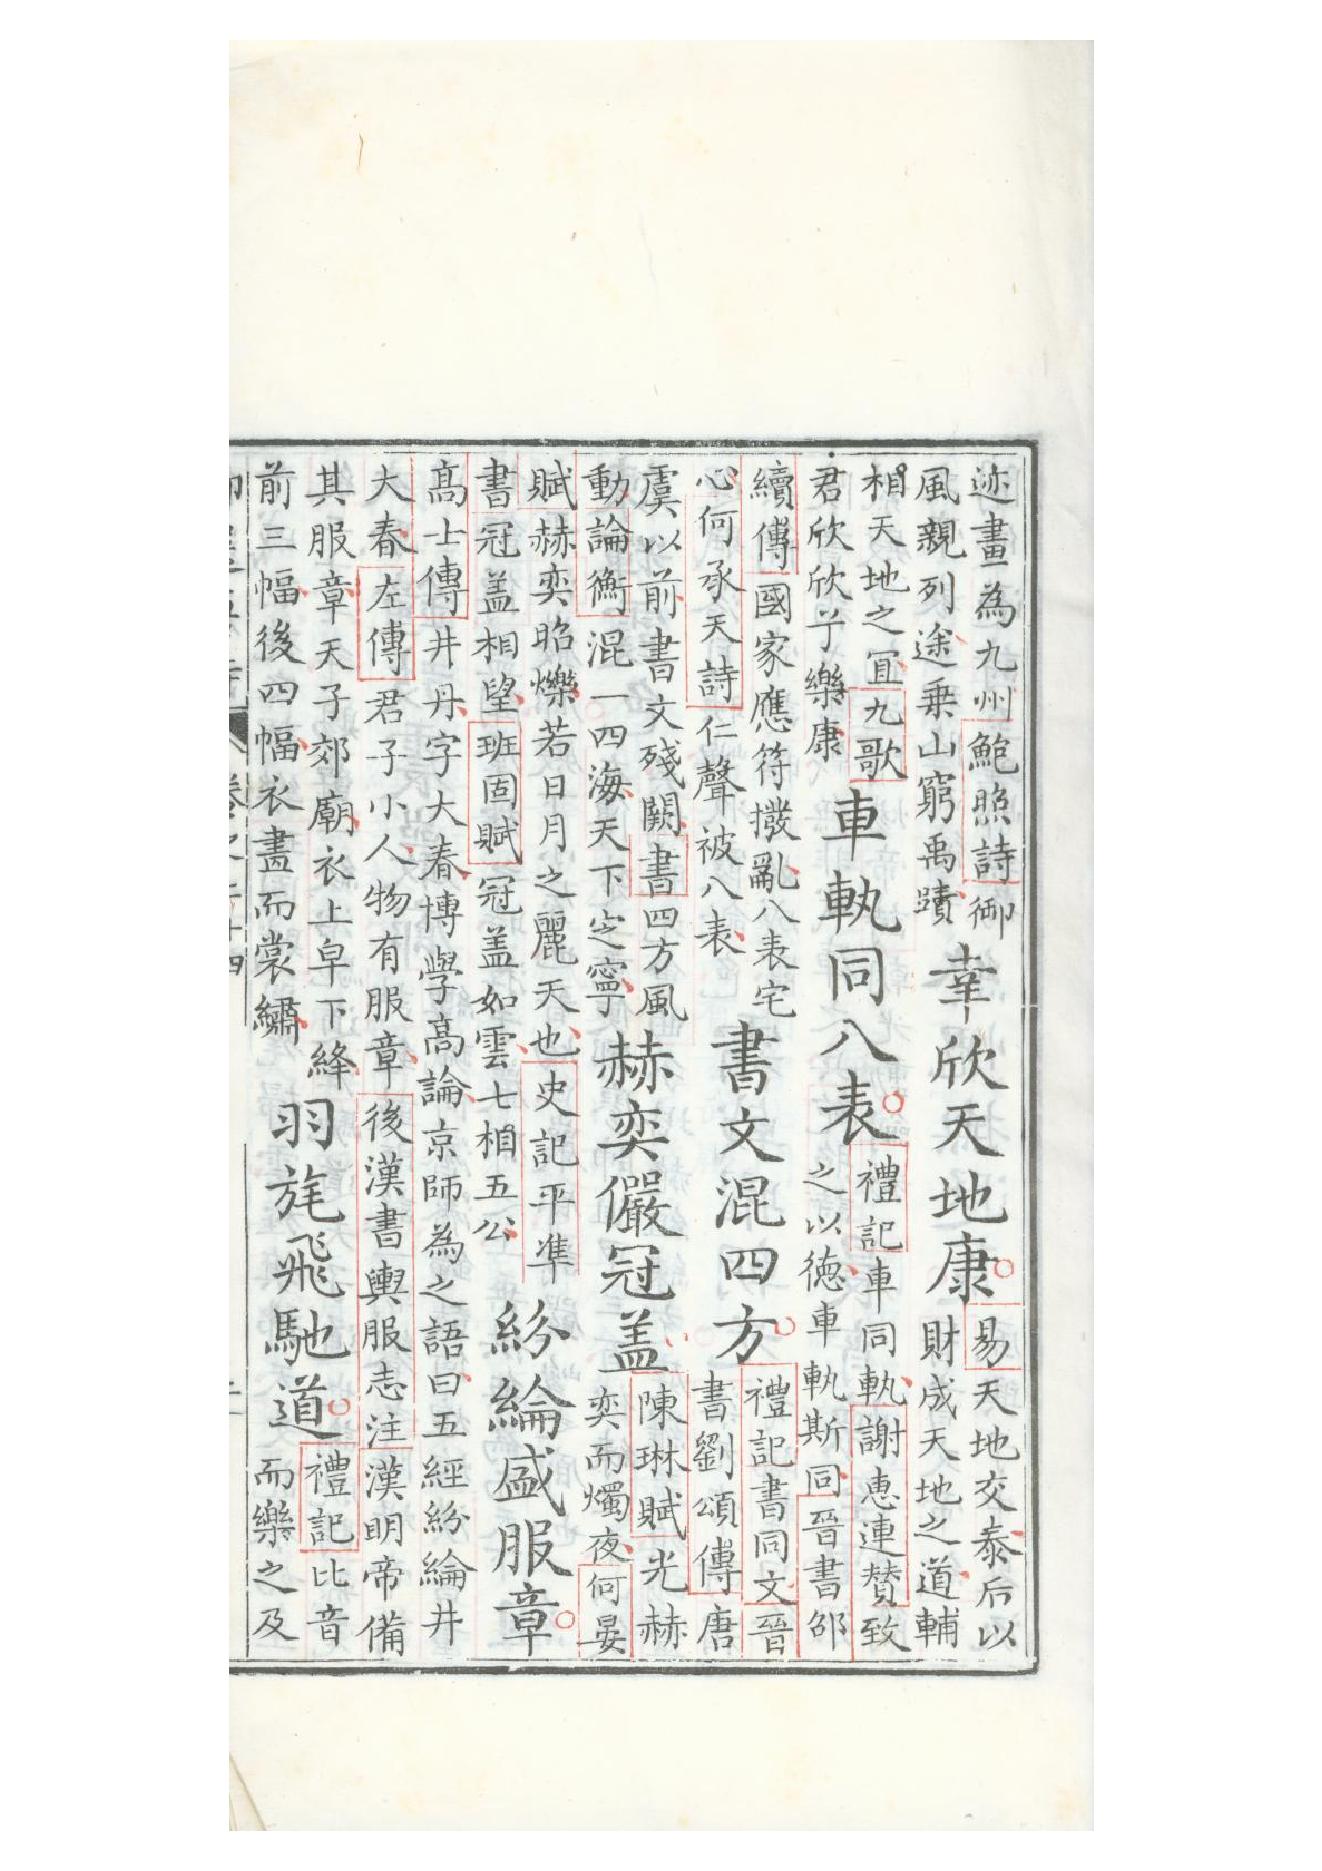 迹畫為九州鮑照詩御
風親列途乗山窮禹蹟
幸欣天地康
易天地交泰后以
財成天地之道輔
相天地之冝九歌
君欣欣兮樂康
車軌同八表
禮記車同軌謝惠連賛致
之以德車軌斯同晉書邵
續傳國家應符撥亂八表宅
心何承天詩仁聲被八表
書文混四方
禮記書同文晉
書劉頌傳唐
虞以前書文殘闕書四方風
動論衡混一四海天下定寧
赫奕儼冠盖
陳琳賦光赫
奕而燭夜何晏
賦赫奕昭爍若日月之麗天也史記平凖
書冠盖相望班固賦冠盖如雲七相五公
紛綸盛服章
高士傳井丹字大春博學高論京師為之語曰五經紛綸井
大春左傳君子小人物有服章後漢書輿服志注漢明帝備
其服章天子郊廟衣上皁下絳
前三幅後四幅衣畫而裳繡
羽旄飛馳道
禮記比音
而樂之及